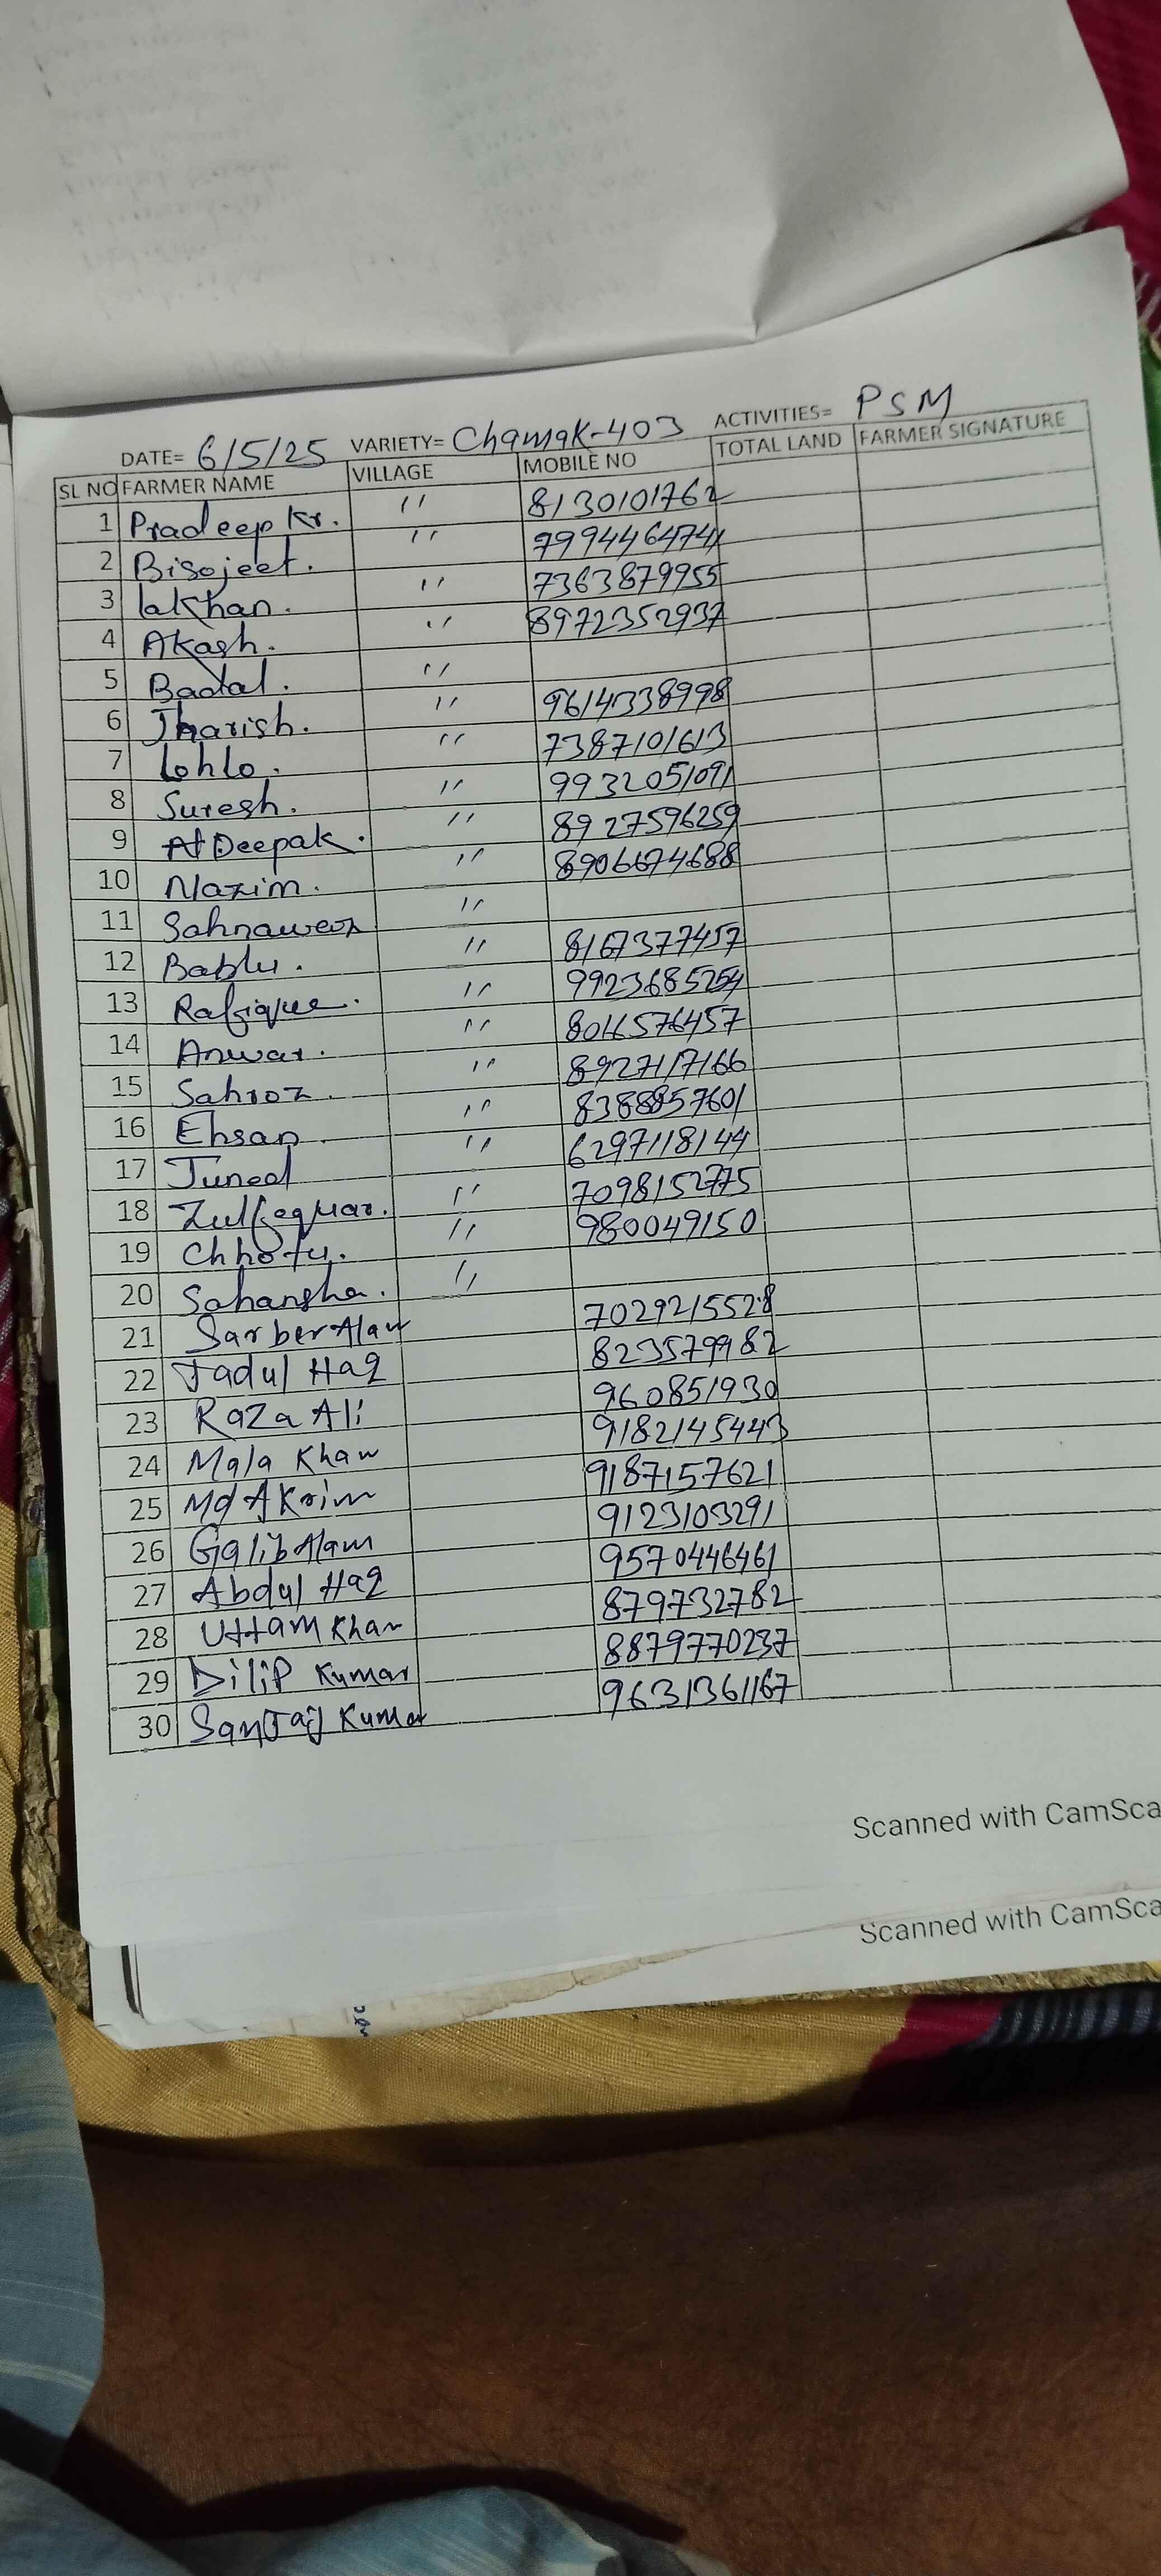 DATE= 6/5/25 VARIETY= Chamak-403 ACTIVITIES= PSM
SL NO FARMER NAME VILLAGE MOBILE NO TOTAL LAND FARMER SIGNATURE
1 Pradeep Kr. " 8130101762
2 Bisojeet. " 7994464741
3 lakhan. " 7363879955
4 Akash. " 8972352937
5 Badal. "
6 Jharish. " 9614338998
7 lohlo. " 7387101613
8 Suresh. " 9932051091
9 Deepak. " 8927596259
10 Nazim. " 8906674688
11 Sahnawerz "
12 Bablu. " 8167377457
13 Rafique. " 9923685254
14 Anwar. " 8016576457
15 Sahroz. " 8927117166
16 Ehsan. " 8388857601
17 Juned " 6297118144
18 Zulfequar. " 7098152775
19 Chhotu. " 980049150
20 Sahansha. "
21 Sarber Alam 7029215528
22 Jadul Haq 823579982
23 RaZa Ali 960851930
24 Mala Khan 9182145443
25 Md A Karim 9187157621
26 Galib Alam 9123103291
27 Abdul Haq 9570446461
28 Uttam Khan 879732782
29 Dilip Kumar 8879770237
30 Kumar 9631361167
Scanned with CamSca
Scanned with CamSca